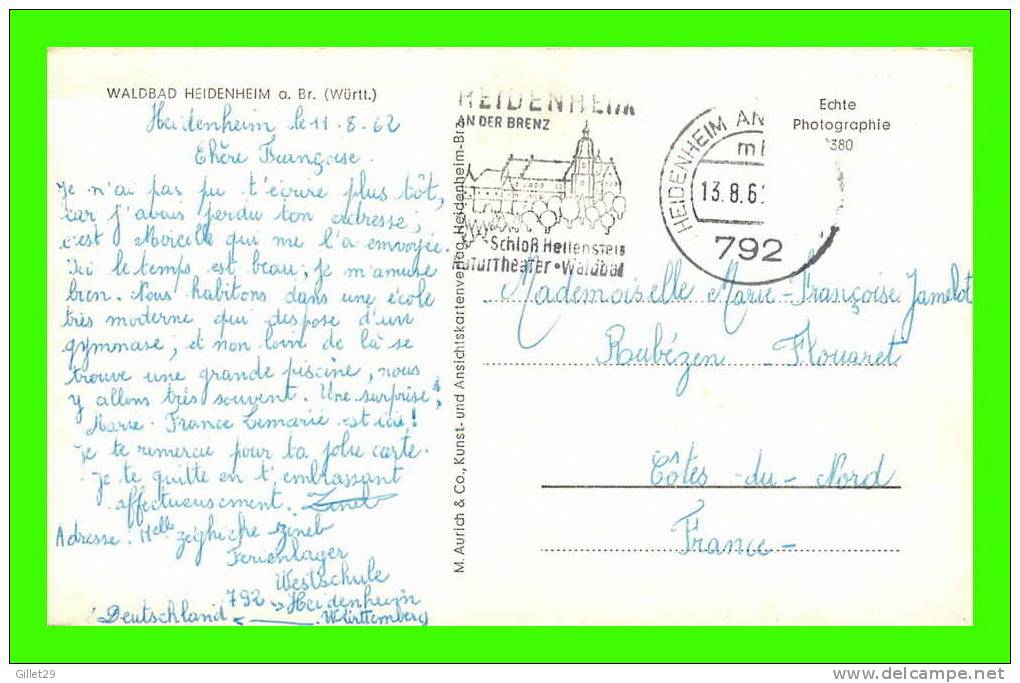 WALDBAD HEIDENHEIM a. Br. (Württ.)
Heidenheim, le 11-8-62
Chère Françoise.
Je n'ai pas pu t'écrire plus tôt,
car j'avais perdu ton adresse;
c'est qui me l'a envoyée.
Ici le temps est beau; je m'amuse
bien. Nous habitons dans une école
très moderne qui dispose d'un
gymnase; et non loin de là se
trouve une grande piscine, nous
y allons très souvent. Une surprise;
Marie-France Lemarié est ici!
Je te remercie pour ta jolie carte.
Je te quitte en t'embrassant
affectueusement. Zineb
Adresse: Melle Zéghiche Zineb
Ferienlager
Westschule
792 Heidenheim
Deutschland Württemberg
M. Aurich & Co., Kunst- und Ansichtskartenverlag, Heidenheim-Br.
HEIDENHEIM
AN DER BRENZ
Schloß Hellenstein
Naturtheater • Waldbad
HEIDENHEIM AN
13.8.6
792
Echte
Photographie
380
Mademoiselle Marie-Françoise Jamelot
Rubézen - Plouaret
Côtes-du-Nord
France-
Gillet29
delcampe.net